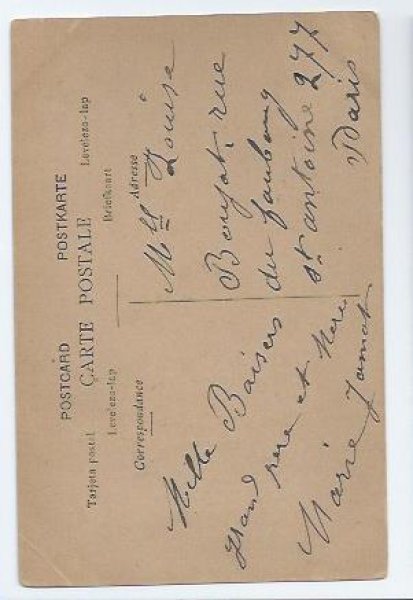 POSTCARD POSTKARTE
CARTE POSTALE
Tarjeta postal Levelezo-lap
Levelezo-lap Briefkaart
Correspondance
Adresse
Mille Baisers
grand pere et Mere
Marie Jamet
Mlle Louise
Boujat, rue
du faubourg
St antoine 277
Paris